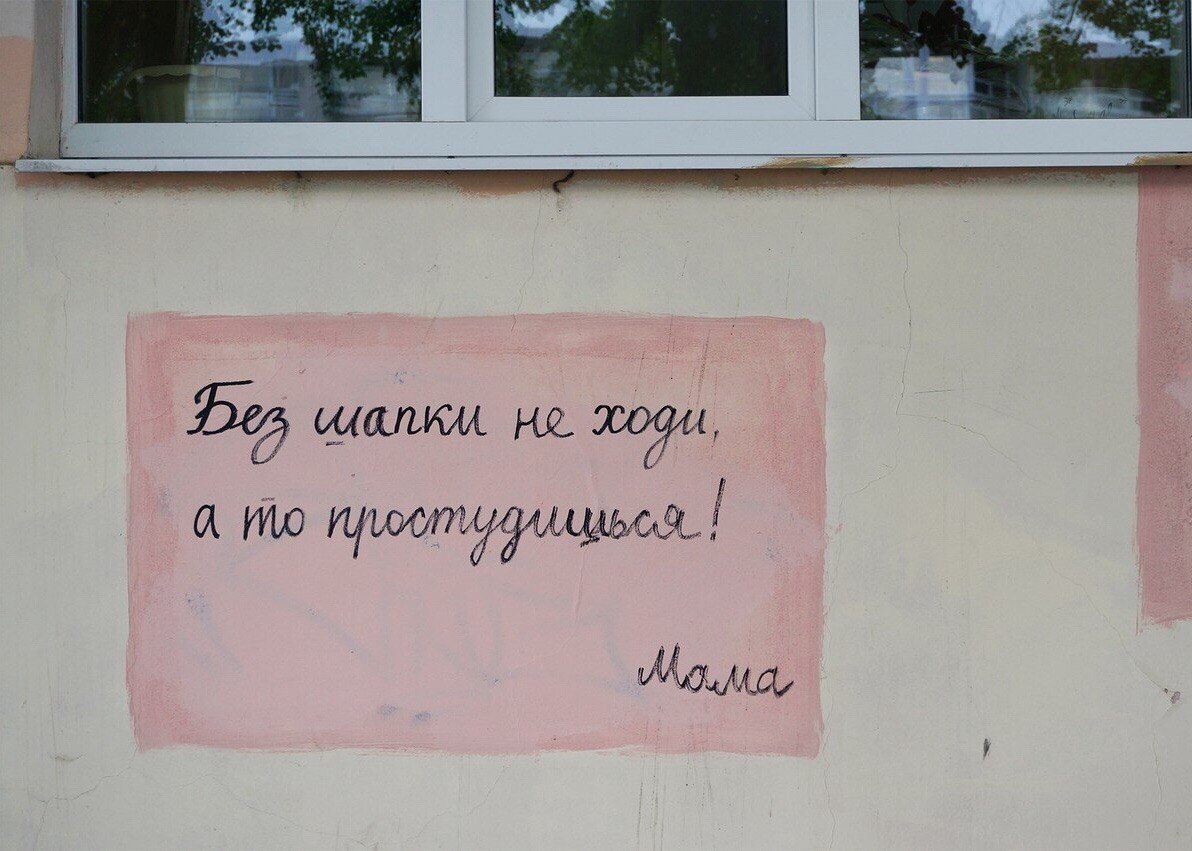 Без шапки не ходи,
а то простудишься!
Мама